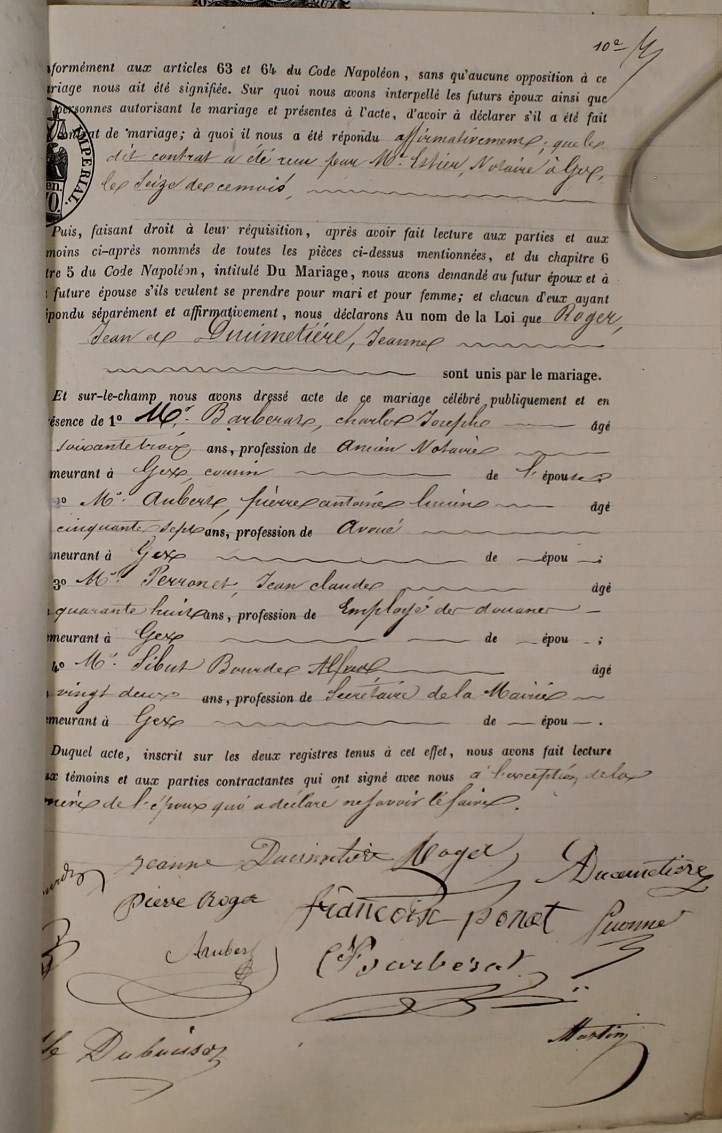 10e
formément aux articles 63 et 64 du Code Napoléon, sans qu'aucune opposition à ce
riage nous ait été signifiée. Sur quoi nous avons interpellé les futurs époux ainsi que
personnes autorisant le mariage et présentes à l'acte, d'avoir à déclarer s'il a été fait
contrat de mariage; à quoi il nous a été répondu affirmativement; que le
dit contrat a été reçu par Me. Estier, Notaire à Gex,
le seize de ce mois,
IMPERIAL.
Puis, faisant droit à leur réquisition, après avoir fait lecture aux parties et aux
moins ci-après nommés de toutes les pièces ci-dessus mentionnées, et du chapitre 6
tre 5 du Code Napoléon, intitulé Du Mariage, nous avons demandé au futur époux et à
future épouse s'ils veulent se prendre pour mari et pour femme; et chacun d'eux ayant
épondu séparément et affirmativement, nous déclarons Au nom de la Loi que Roger,
Jean et Duimetière, Jeanne
sont unis par le mariage.
Et sur-le-champ nous avons dressé acte de ce mariage célébré publiquement et en
ésence de 1o Mr. Barberat, charles Joseph âgé
soixante trois ans, profession de Ancien Notaire
meurant à Gex, cousin de l'épouse
2o Mr. Aubert, pierre antoine âgé
cinquante sept ans, profession de Avoué
meurant à Gex de épou ;
3o Mr. Perronet, Jean claude âgé
quarante huit ans, profession de Employé des douanes
emeurant à Gex de épou ;
4o Mr. Sibut Bourde Alfred âgé
vingt deux ans, profession de Secrétaire de la Mairie
emeurant à Gex de épou .
Duquel acte, inscrit sur les deux registres tenus à cet effet, nous avons fait lecture
ux témoins et aux parties contractantes qui ont signé avec nous à l'exception de la
mère de l'époux qui a déclaré ne savoir le faire.
Jeanne Duimetière Roger Ducimetière
pierre Roger françoise ponet
Aubert Barberat
Dubuisson Martin